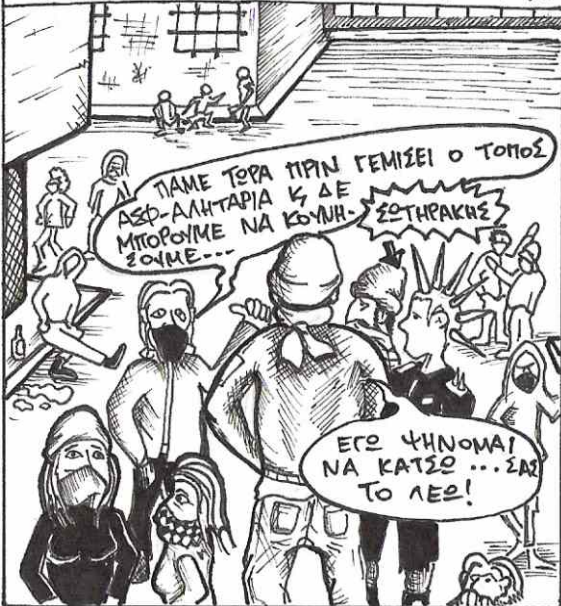 ΠΑΜΕ ΤΩΡΑ ΠΡΙΝ ΓΕΜΙΣΕΙ Ο ΤΟΠΟΣ
ΑΣΦ-ΑΛΗΤΑΡΙΑ Κ ΔΕ
ΜΠΟΡΟΥΜΕ ΝΑ ΚΟΥΝΗ-
ΣΟΥΜΕ...
ΣΩΤΗΡΑΚΗΣ
ΕΓΩ ΨΗΝΟΜΑΙ
ΝΑ ΚΑΤΣΩ ... ΣΑΣ
ΤΟ ΛΕΩ!